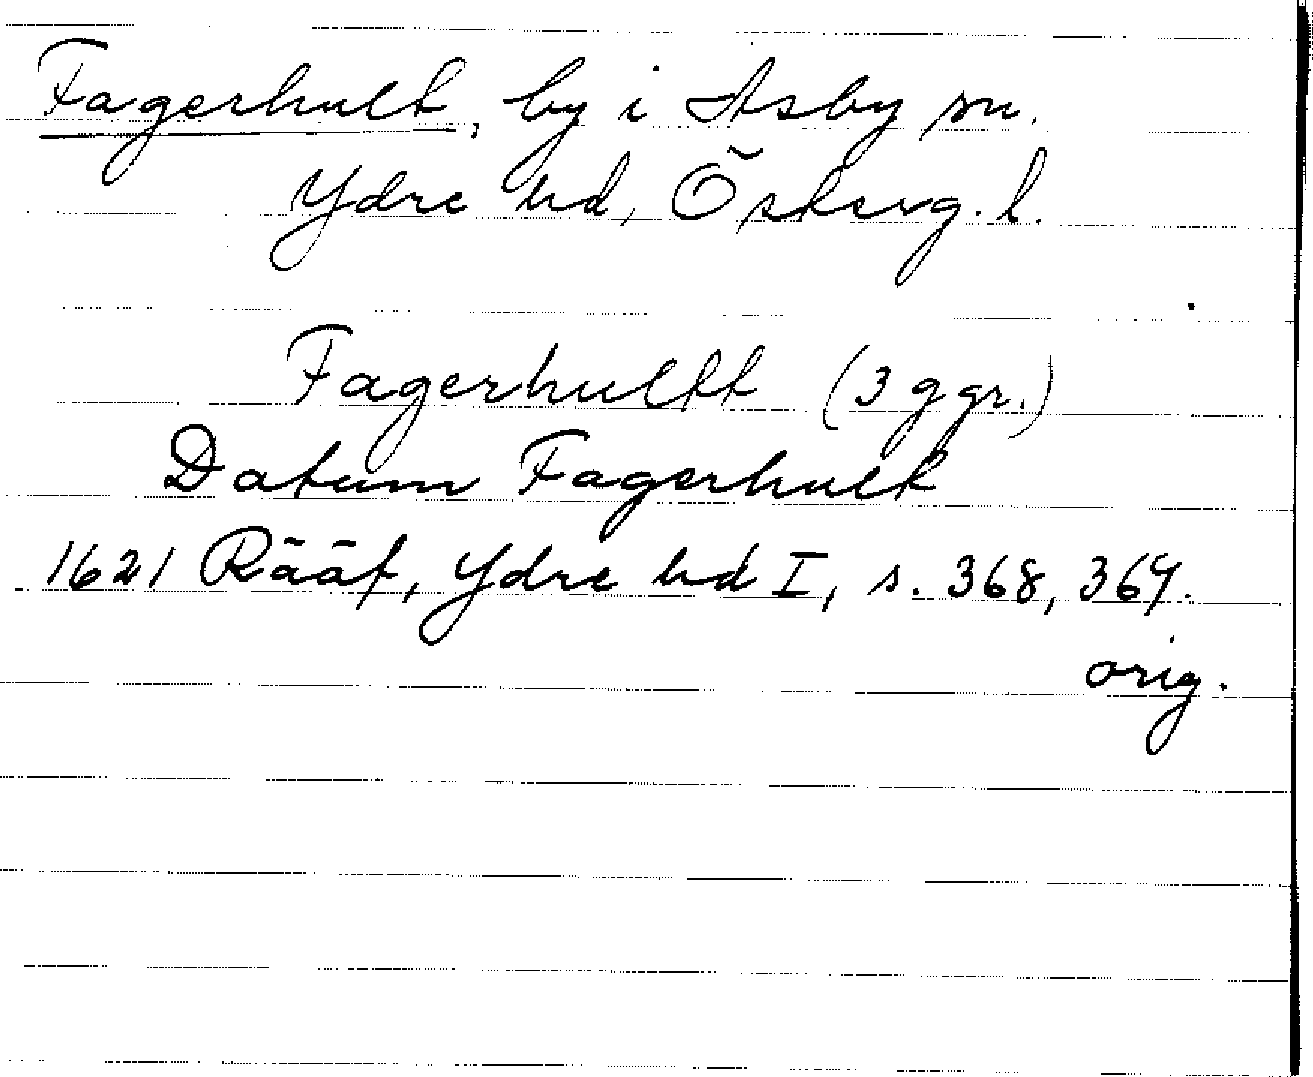 Fagerhult, by i Asby sn.
Ydre hd, Östergg. l.
Fagerhultt (3 ggr.)
Datum Fagerhult
1621 Rääf, Ydre hd I, s. 368, 369.
orig.